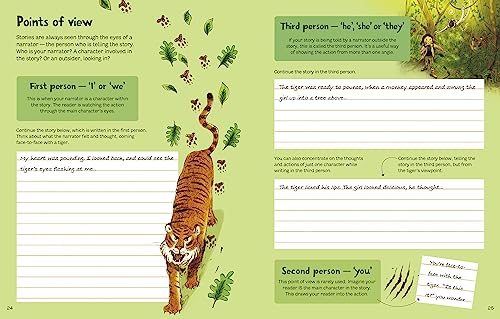 Points of view
Stories are always seen through the eyes of a
narrator — the person who is telling the story.
Who is your narrator? A character involved in
the story? Or an outsider, looking in?
First person — ‘I’ or ‘we’
This is when your narrator is a character within
the story. The reader is watching the action
through the main character's eyes.
Continue the story below, which is written in the first person.
Think about what the narrator felt and thought, coming
face-to-face with a tiger.
My heart was pounding. I looked back, and could see the
tiger's eyes flashing at me...
24
Third person — ‘he’, ‘she’ or ‘they’
If your story is being told by a narrator outside the
story, this is called the third person. It's a useful way
of showing the action from more than one angle.
Continue the story in the third person.
The tiger was ready to pounce, when a monkey appeared and swung the
girl up into a tree above...
You can also concentrate on the thoughts
and actions of just one character while
writing in the third person.
Continue the story below, telling the story
in the third person, but from
the tiger's viewpoint.
The tiger licked his lips. The girl looked delicious, he thought...
Second person — ‘you’
This point of view is rarely used. Imagine your
reader is the main character in the story.
This draws your reader into the action.
You're face-to-
face with the
tiger. "Is this
it?" you wonder...
25